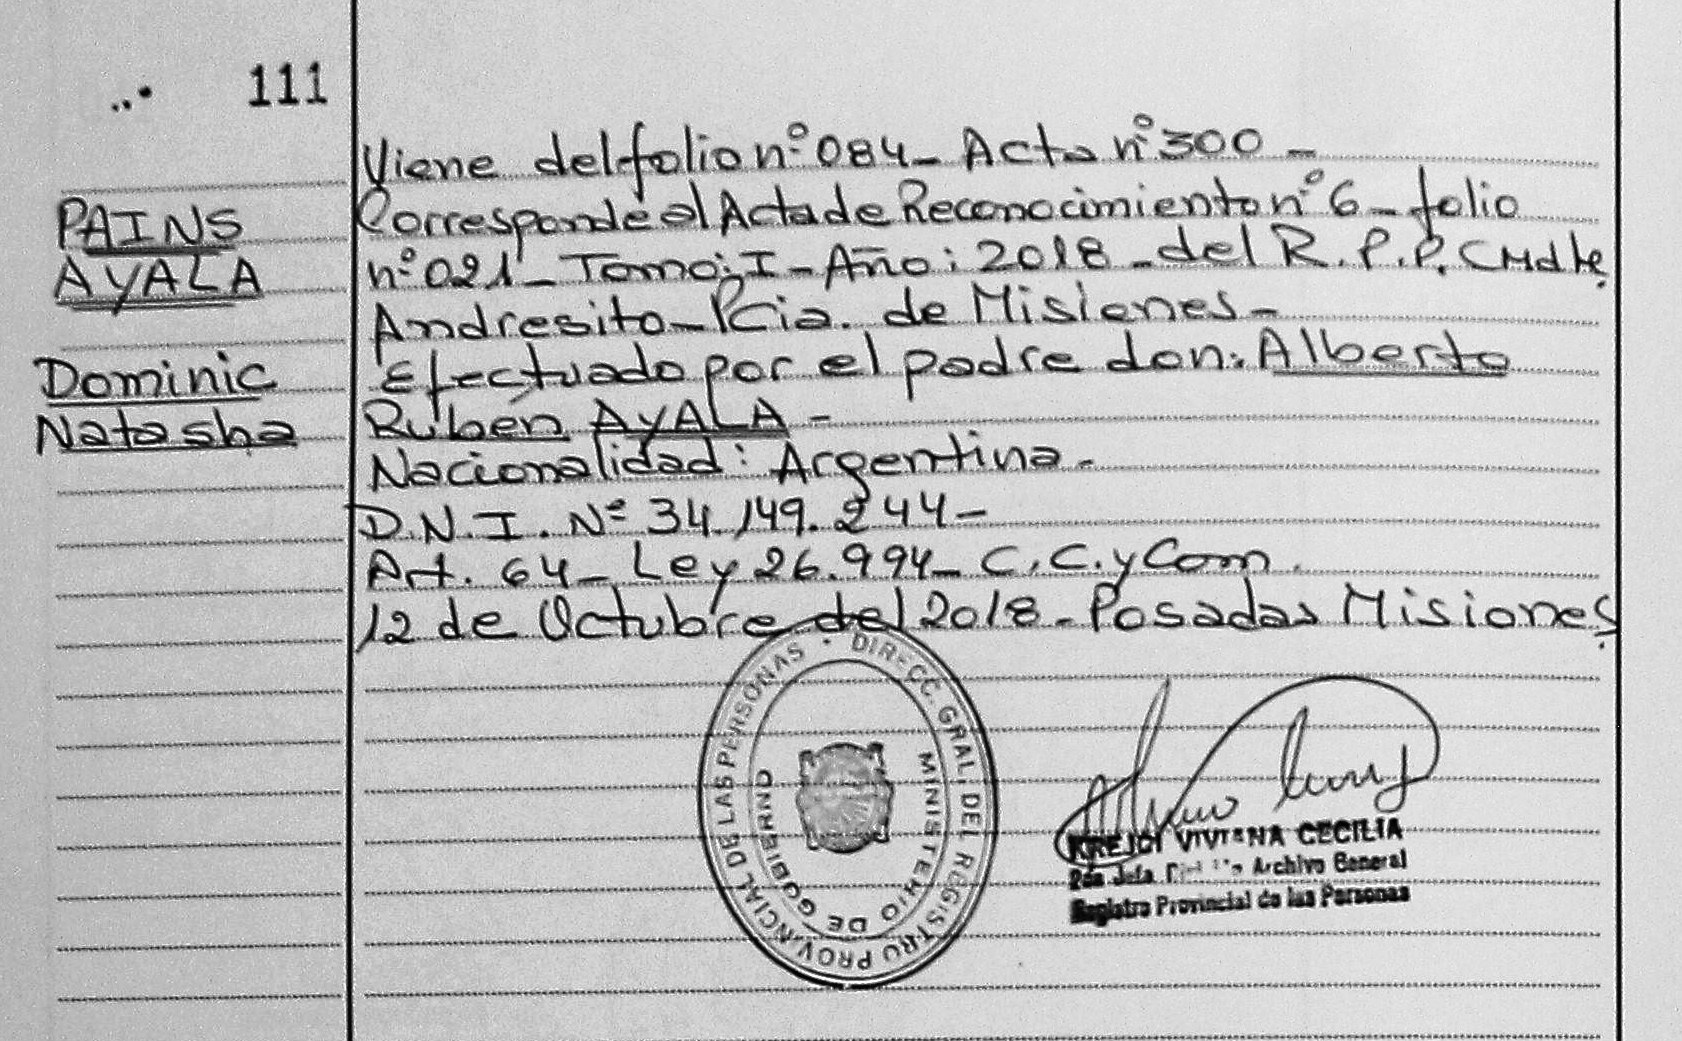 111
PAINS
AYALA
Dominic
Natasha
Viene del folio nº 084 - Acta nº 300 -
Corresponde al Acta de Reconocimiento nº 6 - folio
nº 021 - Tomo: I - Año: 2018 - del R. P. P. Cmdte.
Andresito - Pcia. de Misiones -
Efectuado por el padre don: Alberto
Rubén AYALA -
Nacionalidad: Argentina.
D.N.I. Nº 34.149.244 -
Art. 64 - Ley 26.994 - C.C. y Com.
12 de Octubre del 2018 - Posadas Misiones.
DIRECC. GRAL. DEL REGISTRO PROVINCIAL DE LAS PERSONAS
MINISTERIO DE GOBIERNO
KREJCI VIVIANA CECILIA
Archivo General
Registro Provincial de las Personas